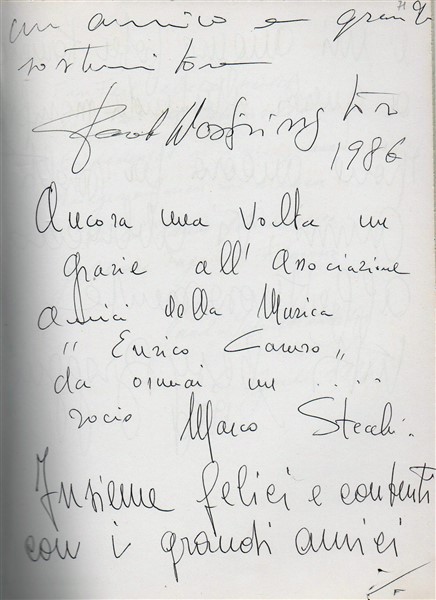 un amico e grande
sostenitore
Paolo Washington
1986
Ancora una volta un
grazie all' Associazione
Amici della Musica
" Enrico Caruso "
da ormai un ....
socio Marco Stecchi.
Insieme felici e contenti
con i grandi amici